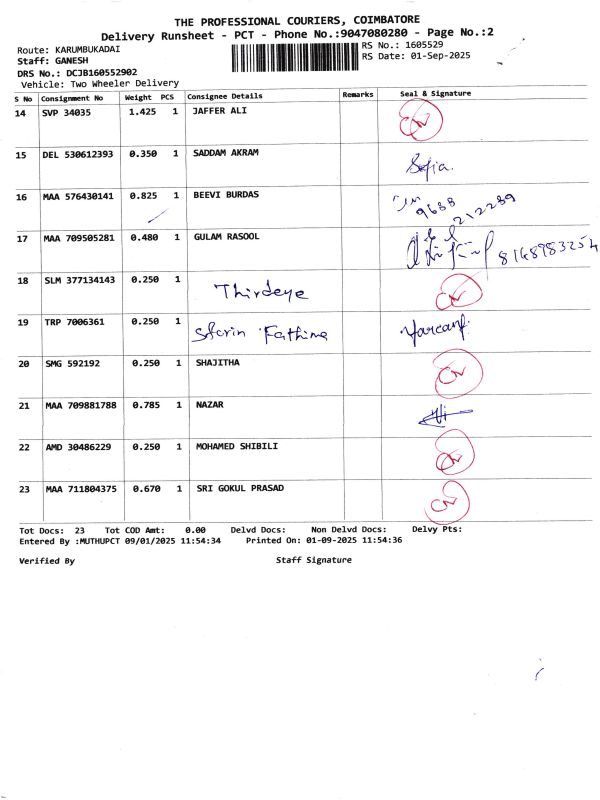 THE PROFESSIONAL COURIERS, COIMBATORE
Delivery Runsheet - PCT - Phone No.:9047080280 - Page No.:2
Route: KARUMBUKADAI
RS No.: 1605529
Staff: GANESH
RS Date: 01-Sep-2025
DRS No.: DCJB160552902
Vehicle: Two Wheeler Delivery
S No Consignment No Weight PCS Consignee Details Remarks Seal & Signature
14 SVP 34035 1.425 1 JAFFER ALI CN
15 DEL 530612393 0.350 1 SADDAM AKRAM Sofia.
16 MAA 576430141 0.825 1 BEEVI BURDAS 9688 212289
17 MAA 709505281 0.480 1 GULAM RASOOL 8148983254
18 SLM 377134143 0.250 1 Thirdeye CN
19 TRP 7006361 0.250 1 Fathima
20 SMG 592192 0.250 1 SHAJITHA CN
21 MAA 709881788 0.785 1 NAZAR
22 AMD 30486229 0.250 1 MOHAMED SHIBILI CN
23 MAA 711804375 0.670 1 SRI GOKUL PRASAD CN
Tot Docs: 23 Tot COD Amt: 0.00 Delvd Docs: Non Delvd Docs: Delvy Pts:
Entered By :MUTHUPCT 09/01/2025 11:54:34 Printed On: 01-09-2025 11:54:36
Verified By Staff Signature